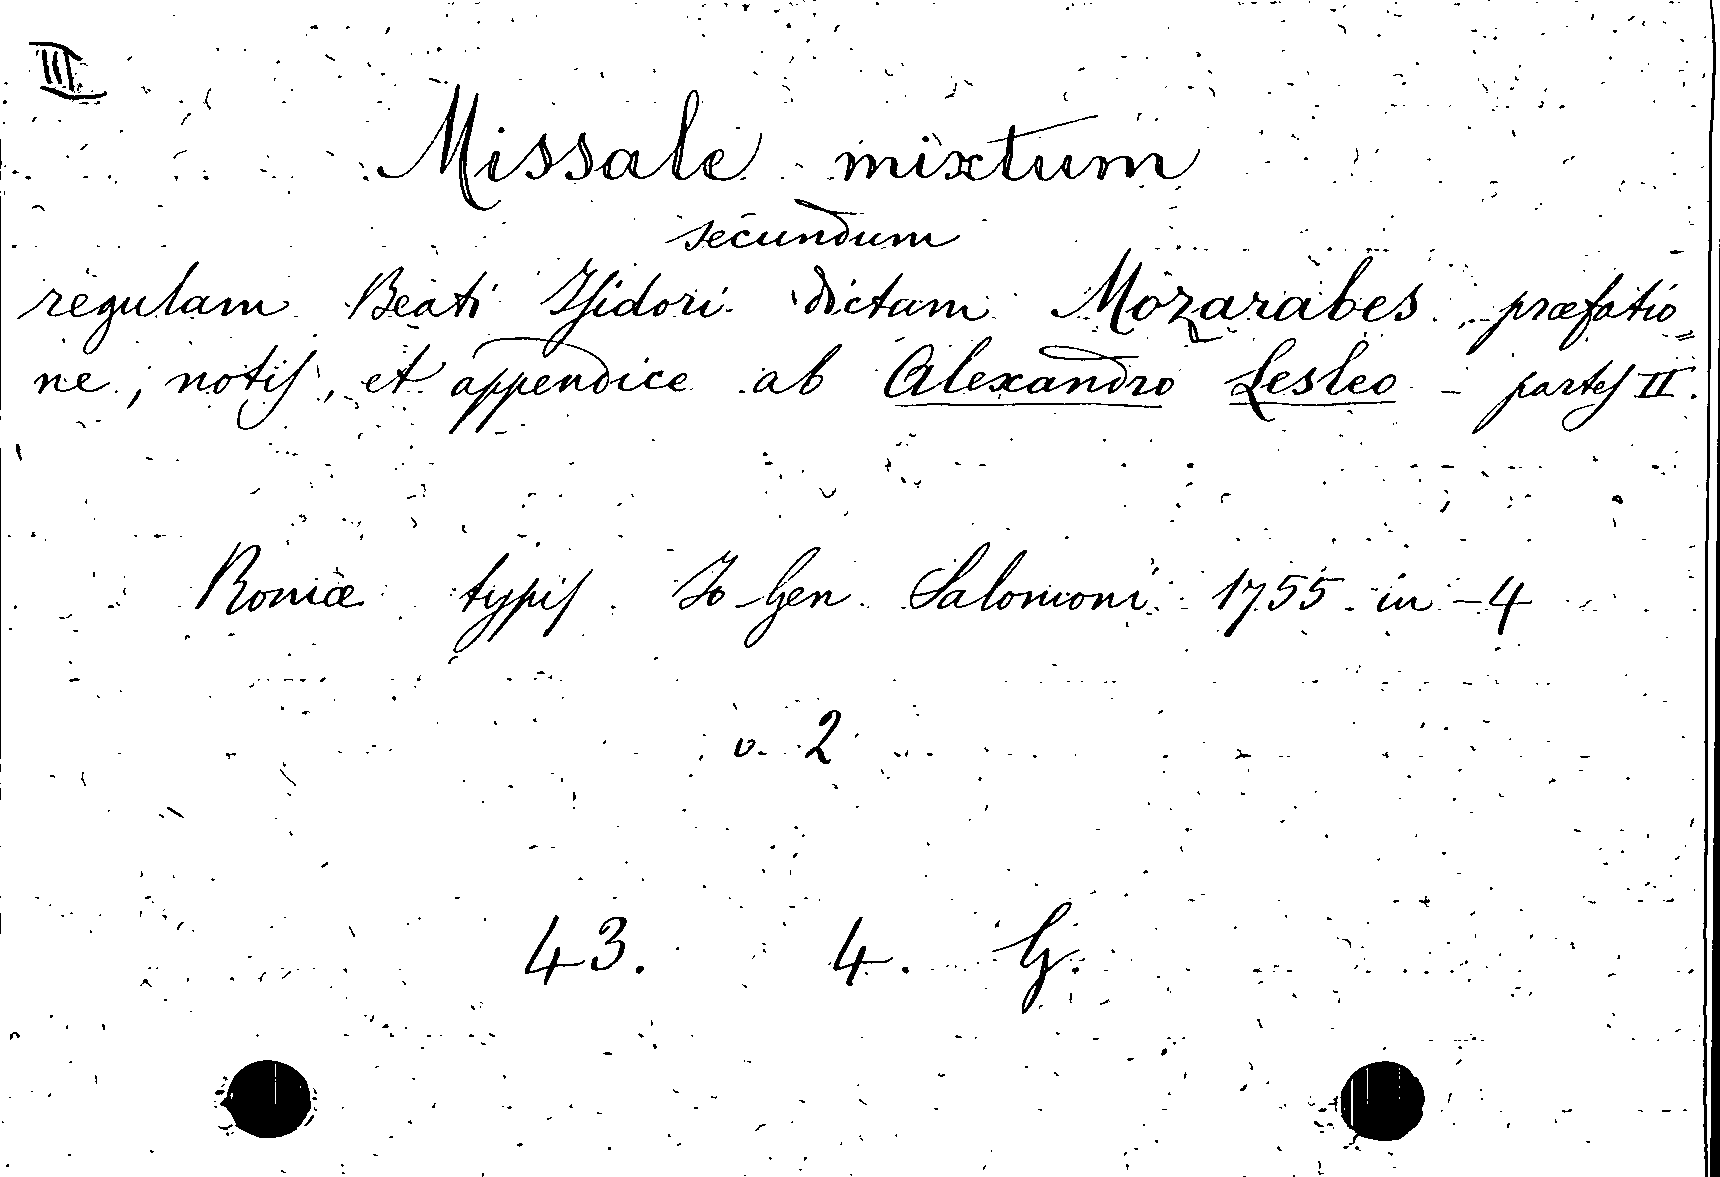 III
Missale mixtum
secundum
regulam Beati Isidori dictam Mozarabes præfatio=
ne, notis, et appendice ab Alexandro Lesleo - partes II.
Romæ typis Jo Gen Salomoni 1755 in-4
v. 2
43. 4. G.